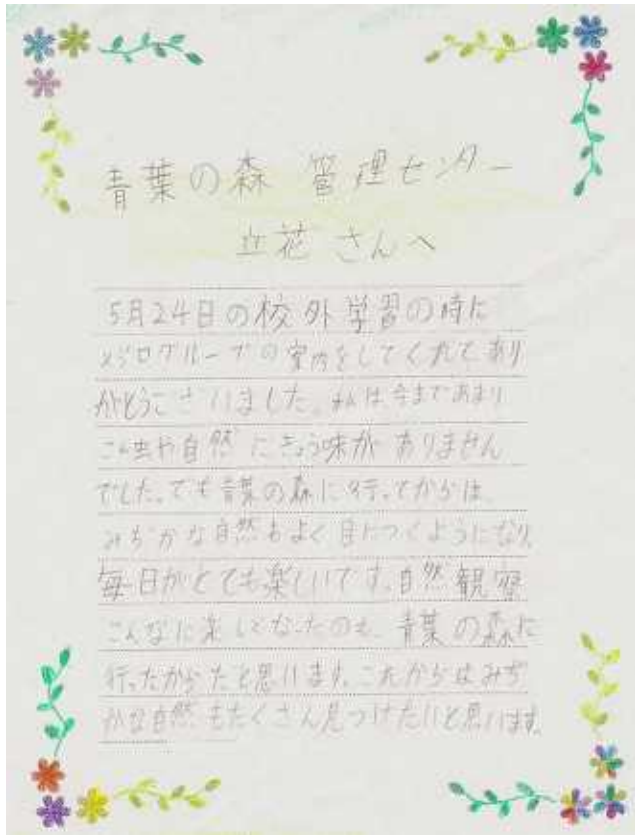 青葉の森 管理センター
立花 さんへ
5月24日の校外学習の時に
メジログループの案内をしてくれてあり
がとうございました。私は今まであまり
こん虫や自然にきょう味がありません
でした。でも青葉の森に行ってからは
みぢかな自然もよく目につくようになり、
毎日がとても楽しいです。自然観察
こんなに楽しくなったのも、青葉の森に
行ったからだと思います。これからはみぢ
かな自然もたくさん見つけたいと思います。